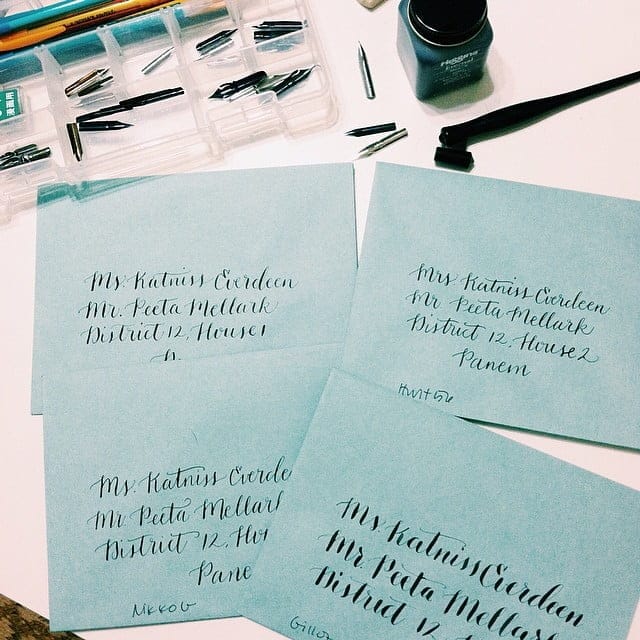 Higgins
Eternal
Ms. Katniss Everdeen
Mr. Peeta Mellark
District 12, House 1
Mrs Katniss Everdeen
Mr Peeta Mellark
District 12, House 2
Panem
Hunt 56
Ms. Katniss Everde
Mr Peeta Mellar
District 12, Hou
Pane
Nikko G
Ms Katniss Everdeen
Mr Peeta Mellark
District 12